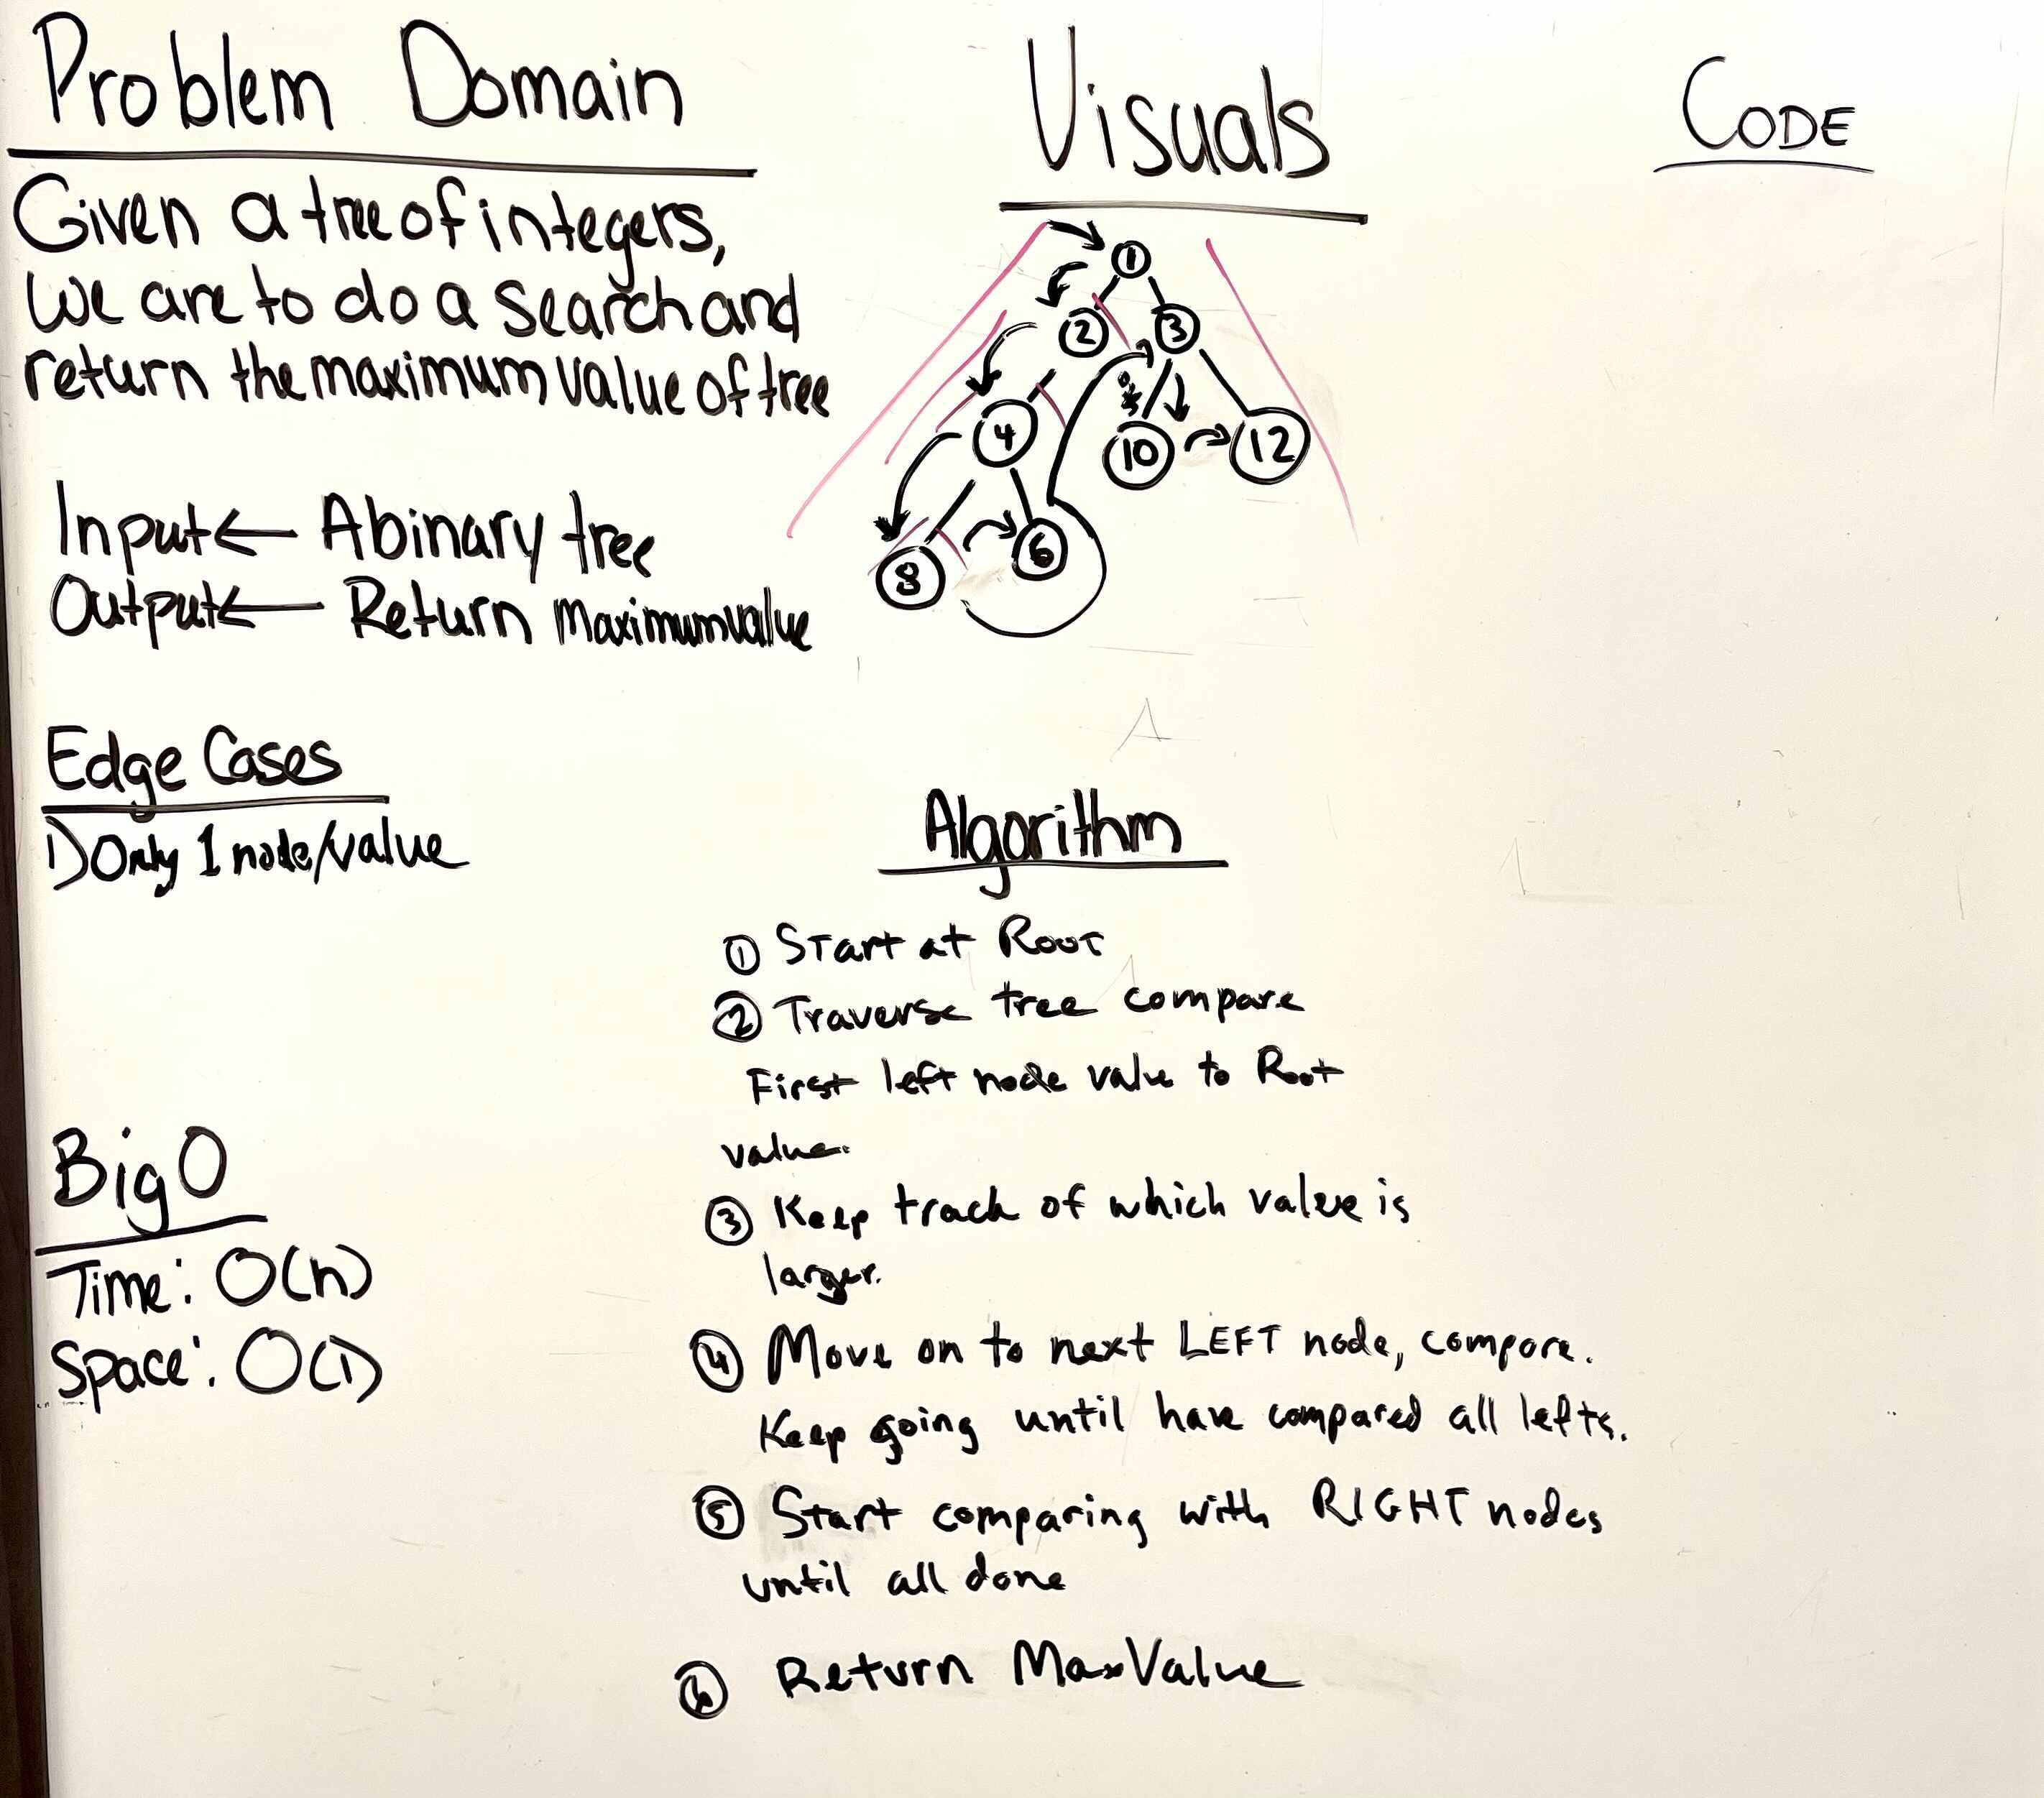 Problem Domain
Given a tree of integers,
we are to do a search and
return the maximum value of tree
Input ← A binary tree
Output ← Return maximum value
Edge Cases
1) Only 1 node/value
Big O
Time: O(n)
Space: O(1)
Visuals
1
2 3
4 10 12
8 6
Algorithm
① Start at Root
② Traverse tree compare
First left node value to Root
value.
③ Keep track of which value is
larger.
④ Move on to next LEFT node, compare.
Keep going until have compared all lefts.
⑤ Start comparing with RIGHT nodes
until all done
⑥ Return MaxValue
CODE